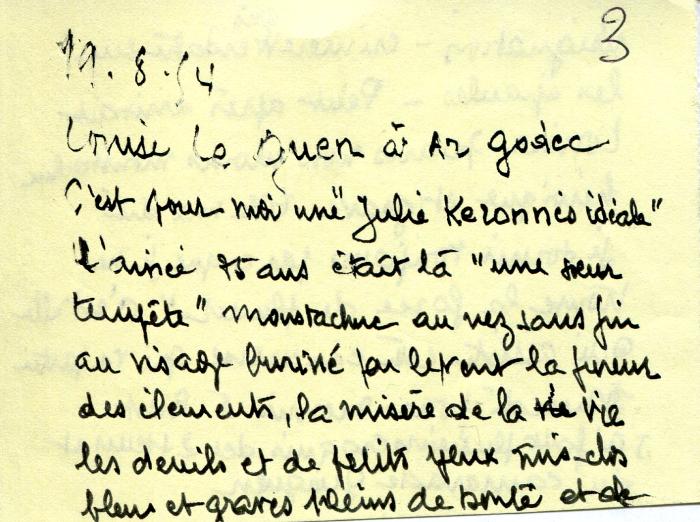 3
11.8.54
Louise Le Quen à Ar gosec
C'est pour moi une "Julie Keronnès idéale"
L'aînée 75 ans était là "une sœur
tempête" moustachue au nez sans fin
au visage buriné par le vent la fureur
des éléments, la misère de la vie
les deuils et de petits yeux mis-clos
bleus et graves pleins de bonté et de